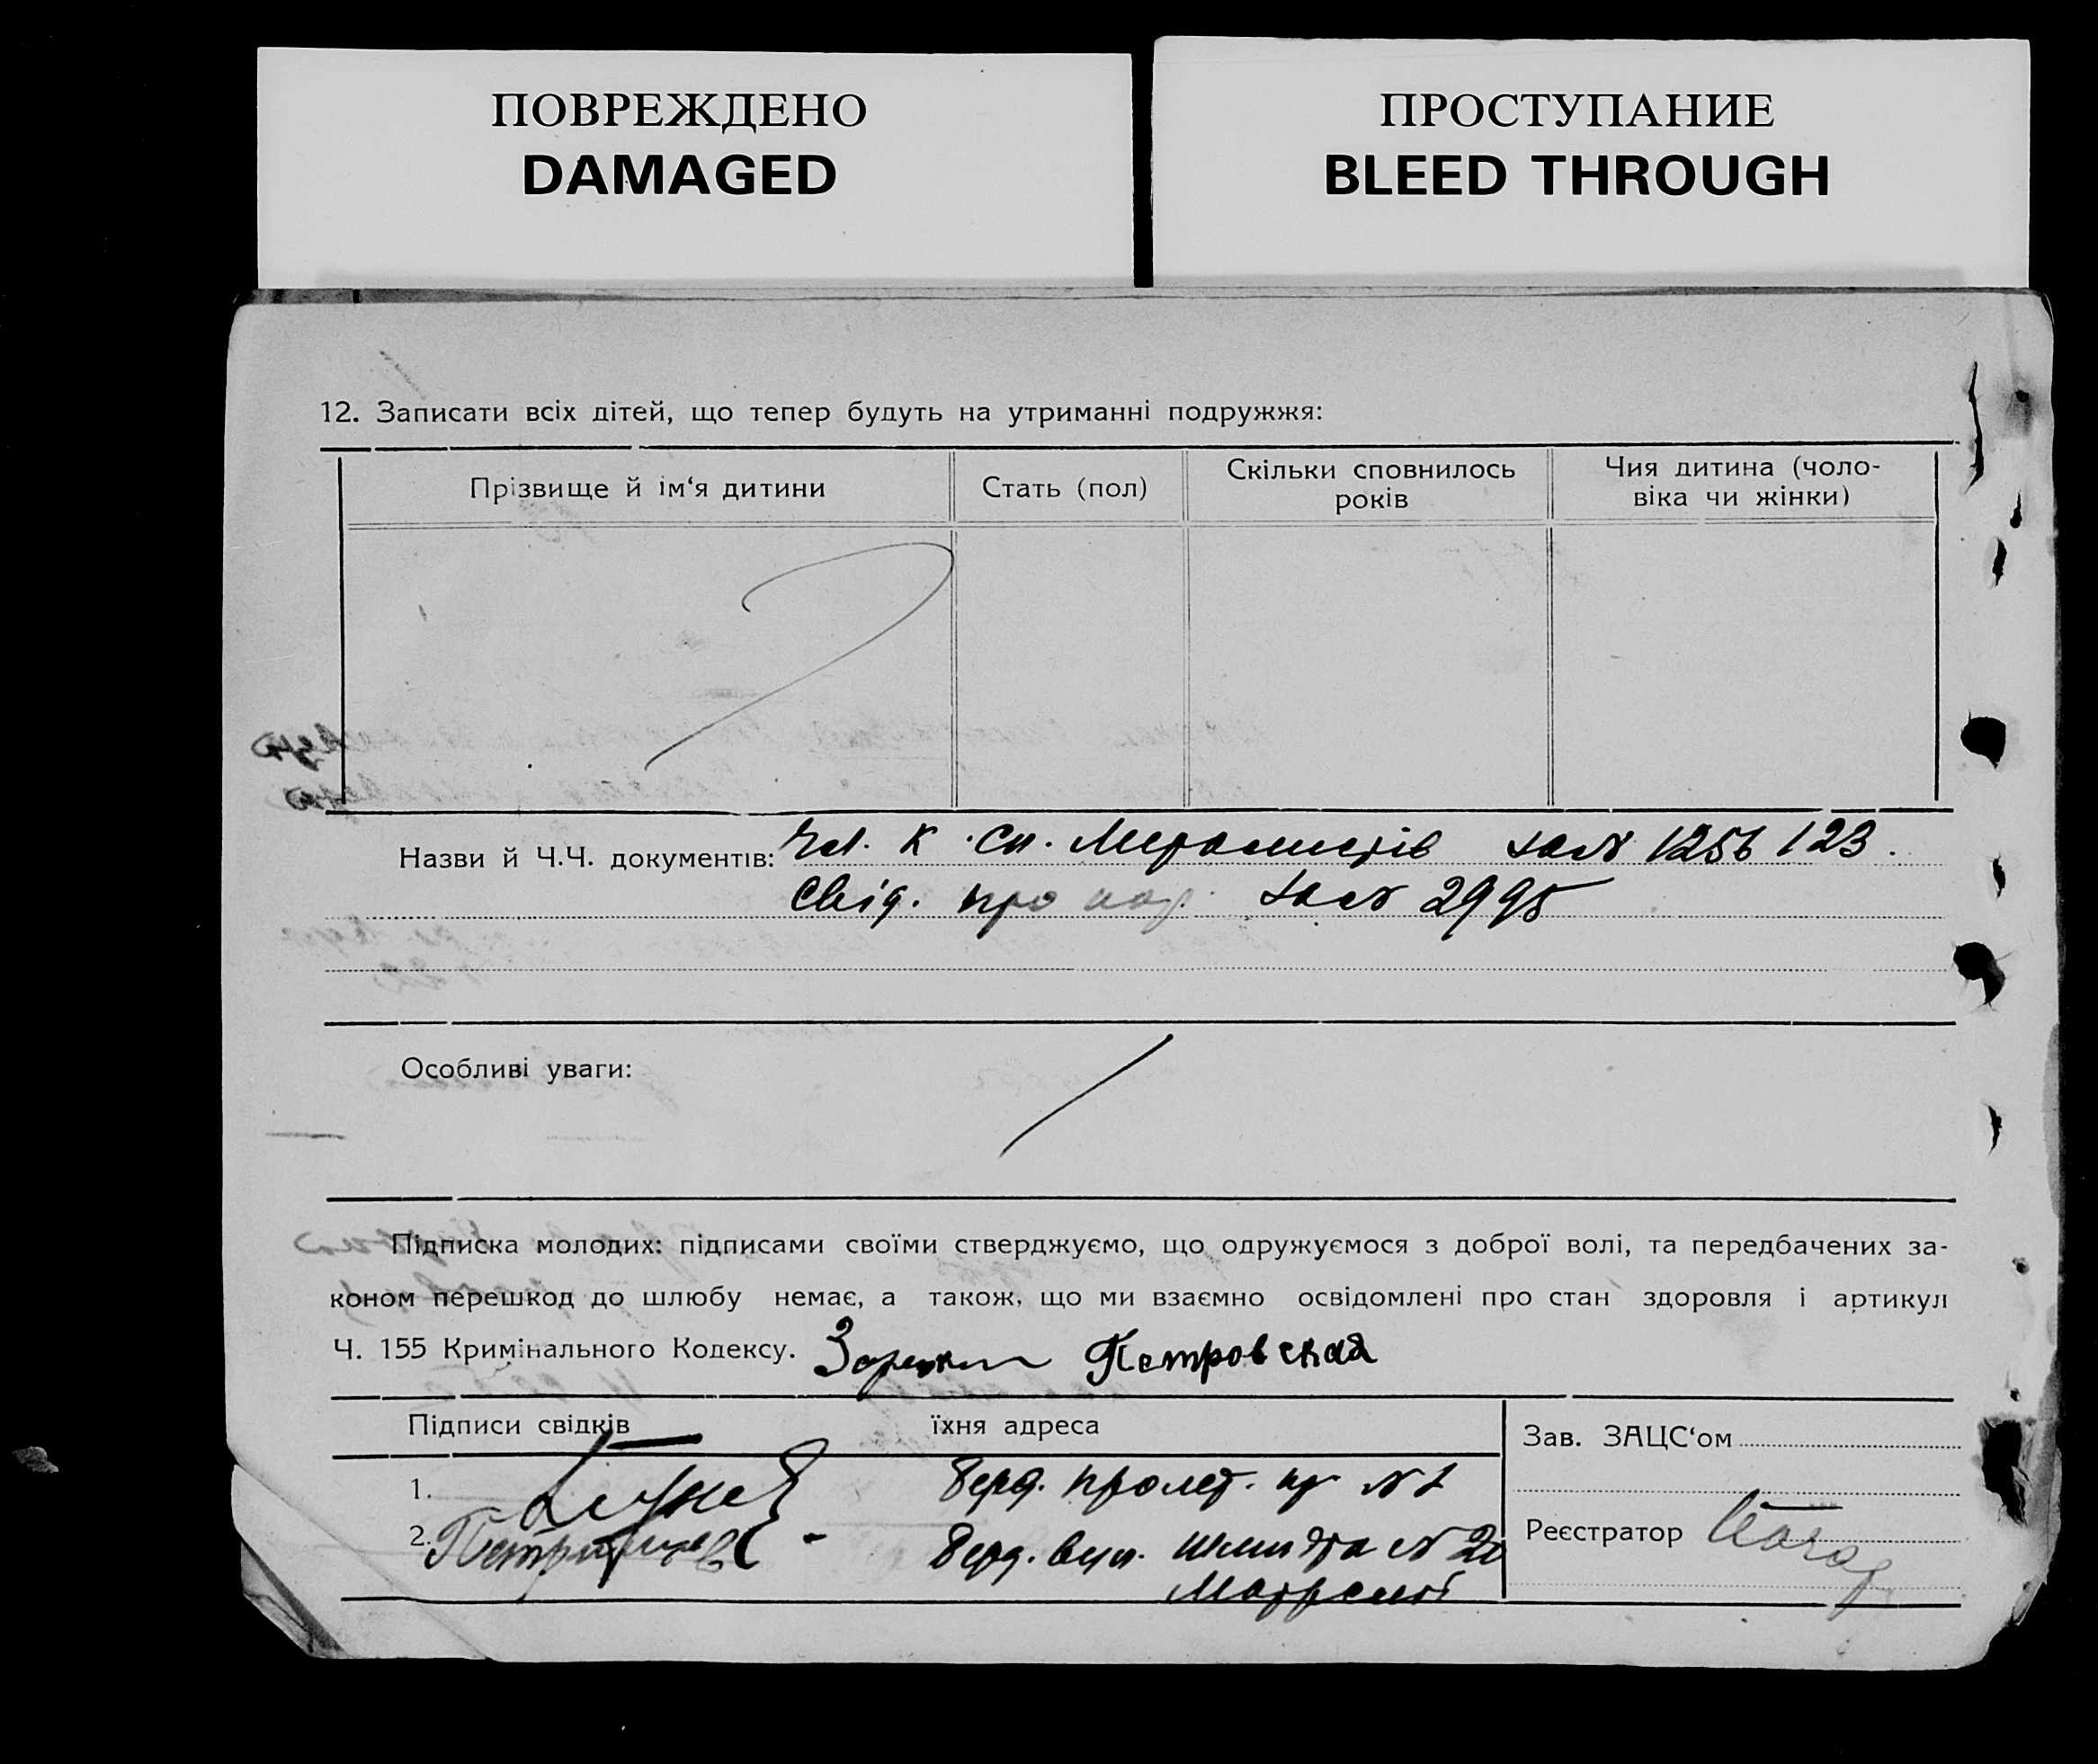 ПОВРЕЖДЕНО
DAMAGED
ПРОСТУПАНИЕ
BLEED THROUGH
12. Записати всіх дітей, що тепер будуть на утриманні подружжя:
Прізвище й ім‘я дитини
Стать (пол)
Скільки сповнилось
років
Чия дитина (чоло-
віка чи жінки)
Назви й Ч.Ч. документів: Чл. к. сп. за № 1256123.
Свід. про за № 2995
Особливі уваги:
Підписка молодих: підписами своїми стверджуємо, що одружуємося з доброї волі, та передбачених за-
коном перешкод до шлюбу немає, а також, що ми взаємно освідомлені про стан здоровля і артикул
Ч. 155 Кримінального Кодексу. Петровская
Підписи свідків
їхня адреса
1. Берд. пролет. № 1
2. Берд. вул. Шмидта № 20
Зав. ЗАЦС‘ом
Реєстратор